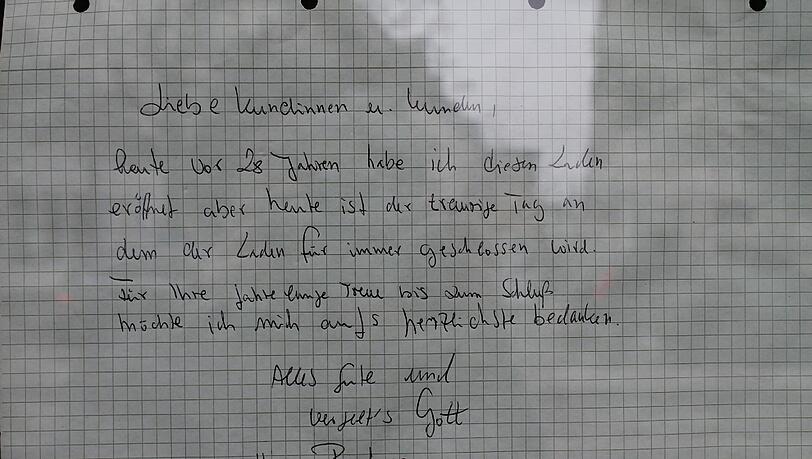 Liebe Kundinnen u. Kunden,
heute vor 28 Jahren habe ich diesen Laden
eröffnet aber heute ist der traurige Tag an
dem der Laden für immer geschlossen wird.
Für Ihre jahrelange Treue bis zum Schluß
möchte ich mich aufs herzlichste bedanken.
Alles Gute und
vergelts Gott